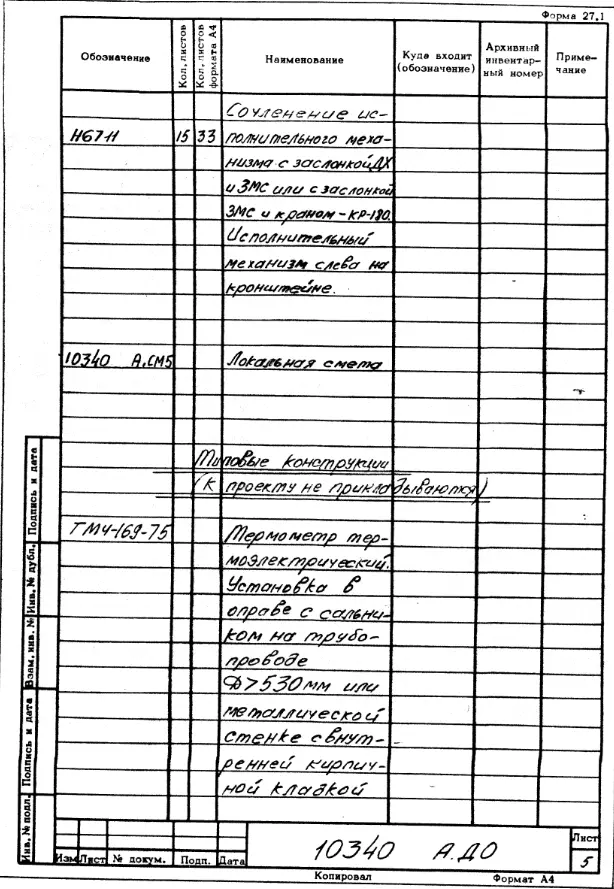 Форма 27.1
Обозначение Кол. листов Кол. листов формата А4 Наименование Куда входит (обозначение) Архивный инвентарный номер Примечание
Сочленение ис-
Н67-II 15 33 полнительного меха-
низма с заслонкой ДХ
и ЗМС или с заслонкой
ЗМС и краном - КР-180.
Исполнительный
механизм слева на
кронштейне.
10340 А.СМ5 Локальная смета
Типовые конструкции
(К проекту не прикладываются)
ТМ4-169-75 Термометр тер-
моэлектрический.
Установка в
оправе с сальни-
ком на трубо-
проводе
Ф>530мм или
металлической
стенке с внут-
ренней кирпич-
ной кладкой
Инв. № подл. Подпись и дата Взам. инв. № Инв. № дубл. Подпись и дата
Изм Лист № докум. Подп. Дата
10340 А.ДО
Лист
5
Копировал Формат А4